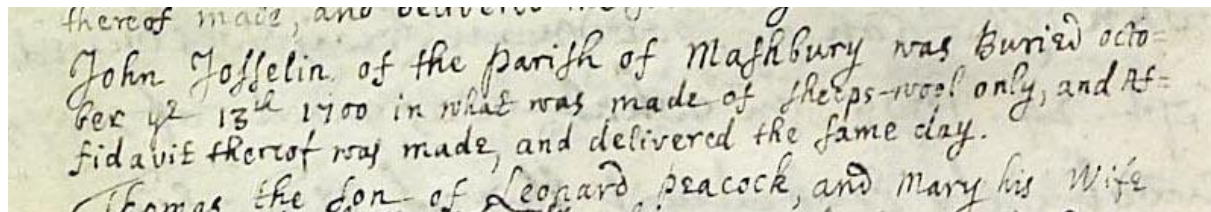 thereof made, and delivered the
John Josselin of the Parish of Mashbury was Buried octo=
ber ye 13th 1700 in what was made of sheeps-wool only, and Af=
fidavit thereof was made, and delivered the same day.
Thomas the son of Leonard Peacock, and Mary his Wife